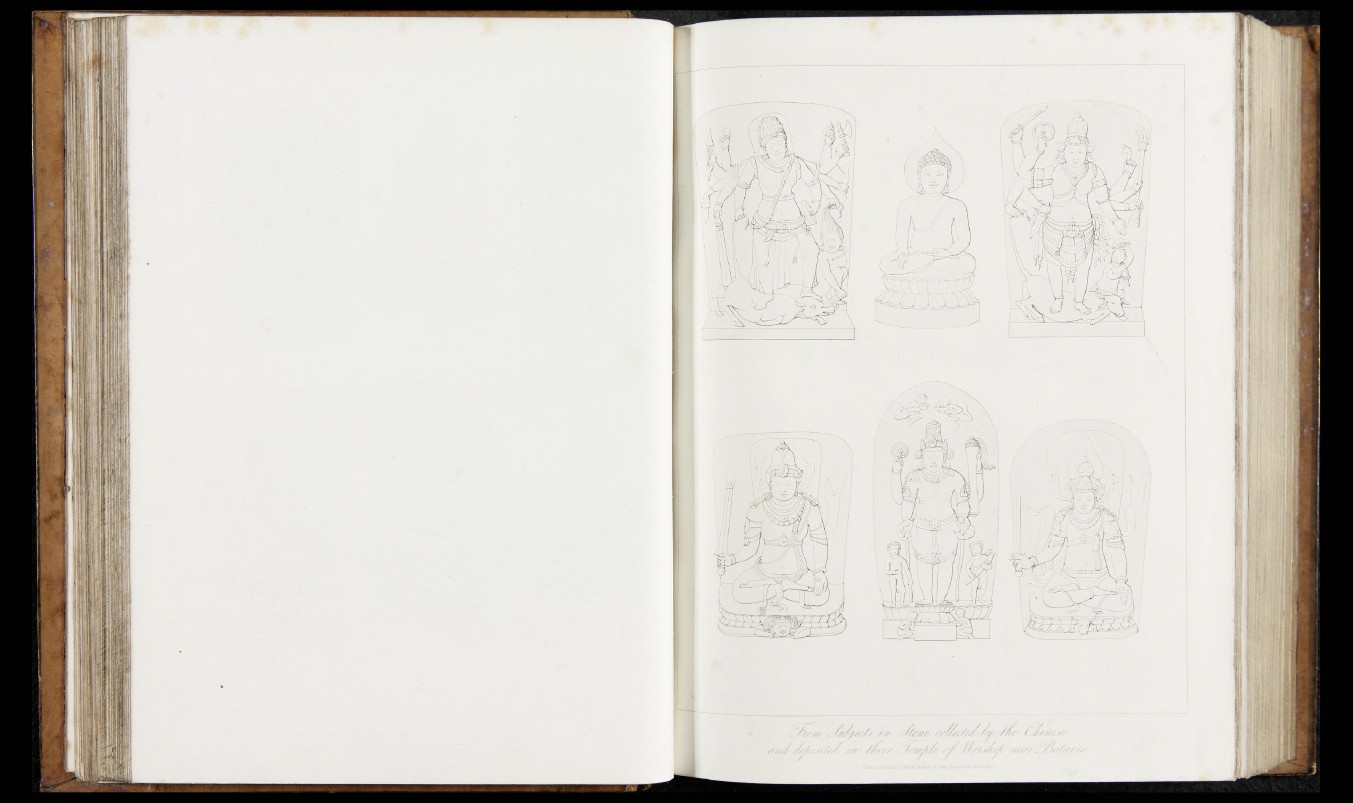 From Subjects in Stone collected by the Chinese
and deposited in their Temple of Worship near Batavia